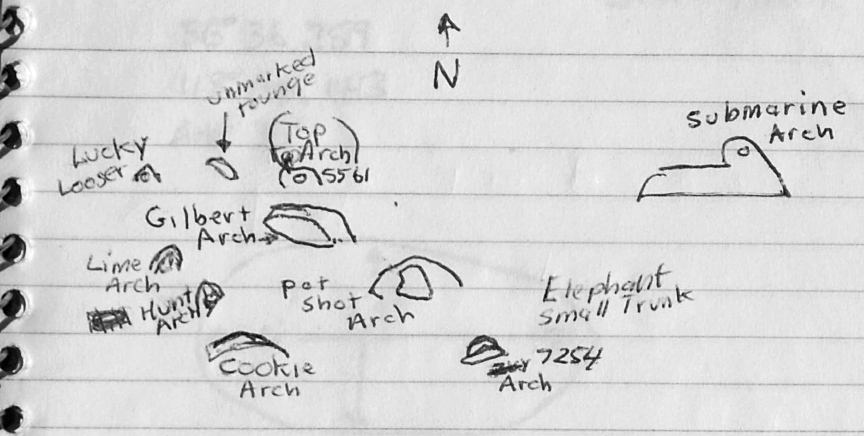 N
unmarked
rounge
Submarine
Arch
(Top
Arch)
5561
Lucky
Looser
Gilbert
Arch
Lime
Arch
Hunt
Arch
Pot
Shot
Arch
Elephant
Small Trunk
Cookie
Arch
7254
Arch